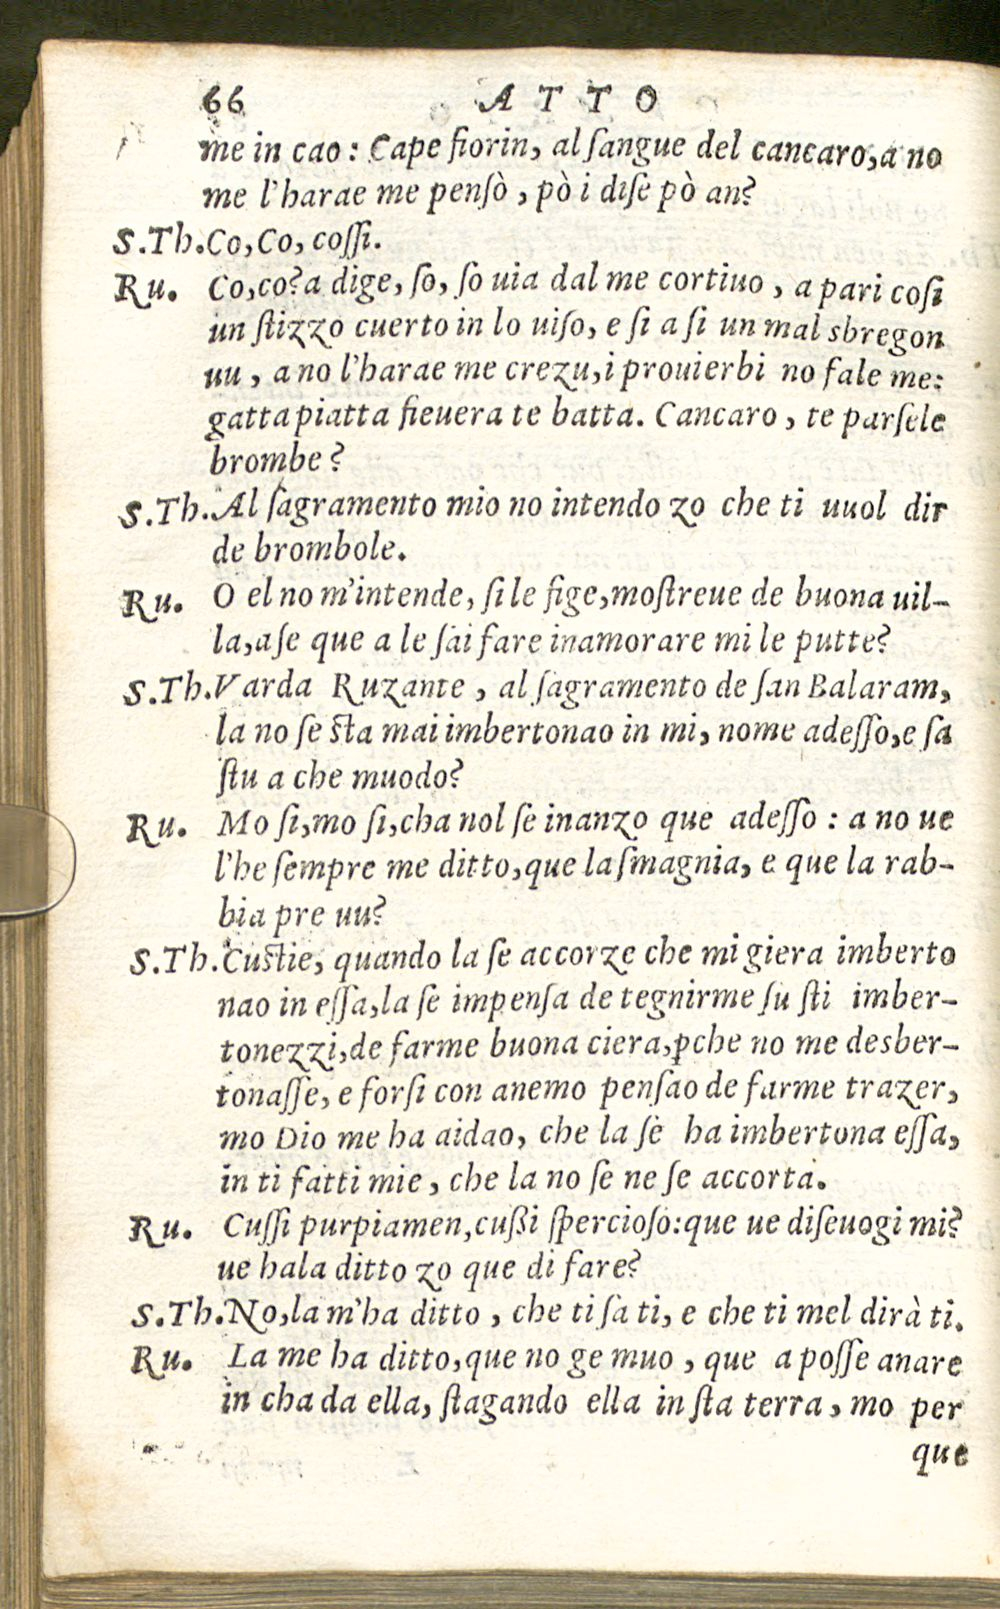 66 ATTO
me in cao: Cape fiorin, al ſangue del cancaro, a no
me l'harae me penſò, pò i diſe pò an?
S.Th. Co, Co, coſſi.
Ru. Co, co? a dige, ſo, ſo uia dal me cortiuo, a pari coſi
un ſtizzo cuerto in lo uiſo, e ſi a ſi un mal sbregon
uu, a no l'harae me crezu, i prouierbi no fale me:
gatta piatta fieuera te batta. Cancaro, te parſele
brombe?
S.Th. Al ſagramento mio no intendo zo che ti uuol dir
de brombole.
Ru. O el no m'intende, ſi le fige, moſtreue de buona uil-
la, aſe que a le ſai fare inamorare mi le putte?
S.Th. Varda Ruzante, al ſagramento de ſan Balaram,
la no ſe ſta mai imbertonao in mi, nome adeſſo, e ſa
ſtu a che muodo?
Ru. Mo ſi, mo ſi, cha nol ſe inanzo que adeſſo: a no ue
l'he ſempre me ditto, que la ſmagnia, e que la rab-
bia pre uu?
S.Th. Cuſtie, quando la ſe accorze che mi giera imberto
nao in eſſa, la ſe impenſa de tegnirme ſu ſti imber-
tonezzi, de farme buona ciera, ꝑche no me desber-
tonaſſe, e forſi con anemo penſao de farme trazer,
mo Dio me ha aidao, che la ſè ha imbertona eſſa,
in ti fatti mie, che la no ſe ne ſe accorta.
Ru. Cuſſi purpiamen, cußi ſpercioſo: que ue diſeuogi mi?
ue hala ditto zo que di fare?
S.Th. No, la m'ha ditto, che ti ſa ti, e che ti mel dirà ti.
Ru. La me ha ditto, que no ge muo, que a poſſe anare
in cha da ella, ſtagando ella in ſta terra, mo per
que